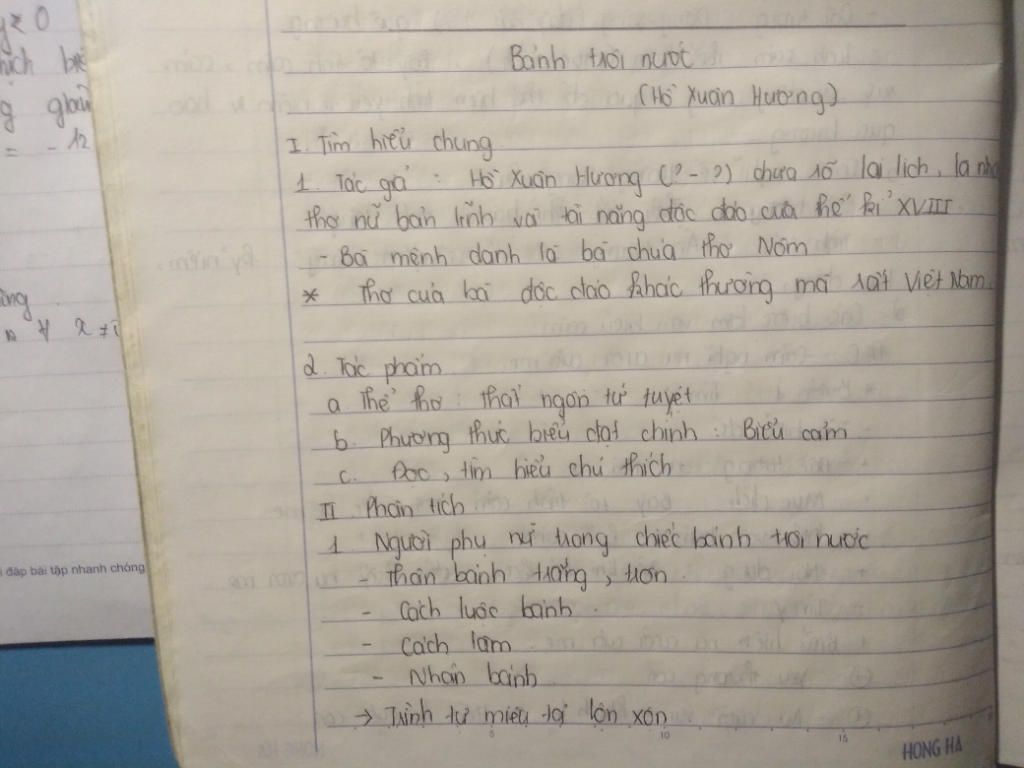 y ≥ 0
hịch b
g
= - 12
Bánh trôi nước
(Hồ Xuân Hương)
I. Tìm hiểu chung
1. Tác giả : Hồ Xuân Hương (? - ?) chưa rõ lai lịch, là nhà
thơ nữ bản lĩnh và tài năng độc đáo của thế kỉ XVIII
- Bà mệnh danh là bà chúa thơ Nôm
* Thơ của bà độc đáo khác thường mà rất Việt Nam.
2. Tác phẩm
a Thể thơ : thất ngôn tứ tuyệt
b. Phương thức biểu đạt chính : Biểu cảm
c. Đọc, tìm hiểu chú thích
II Phân tích
1 Người phụ nữ trong chiếc bánh trôi nước
- Thân bánh trắng, tròn.
- Cách luộc bánh.
- Cách làm
- Nhân bánh
→ Trình tự miêu tả lộn xộn
i đáp bài tập nhanh chóng
5 10 15
HONG HA